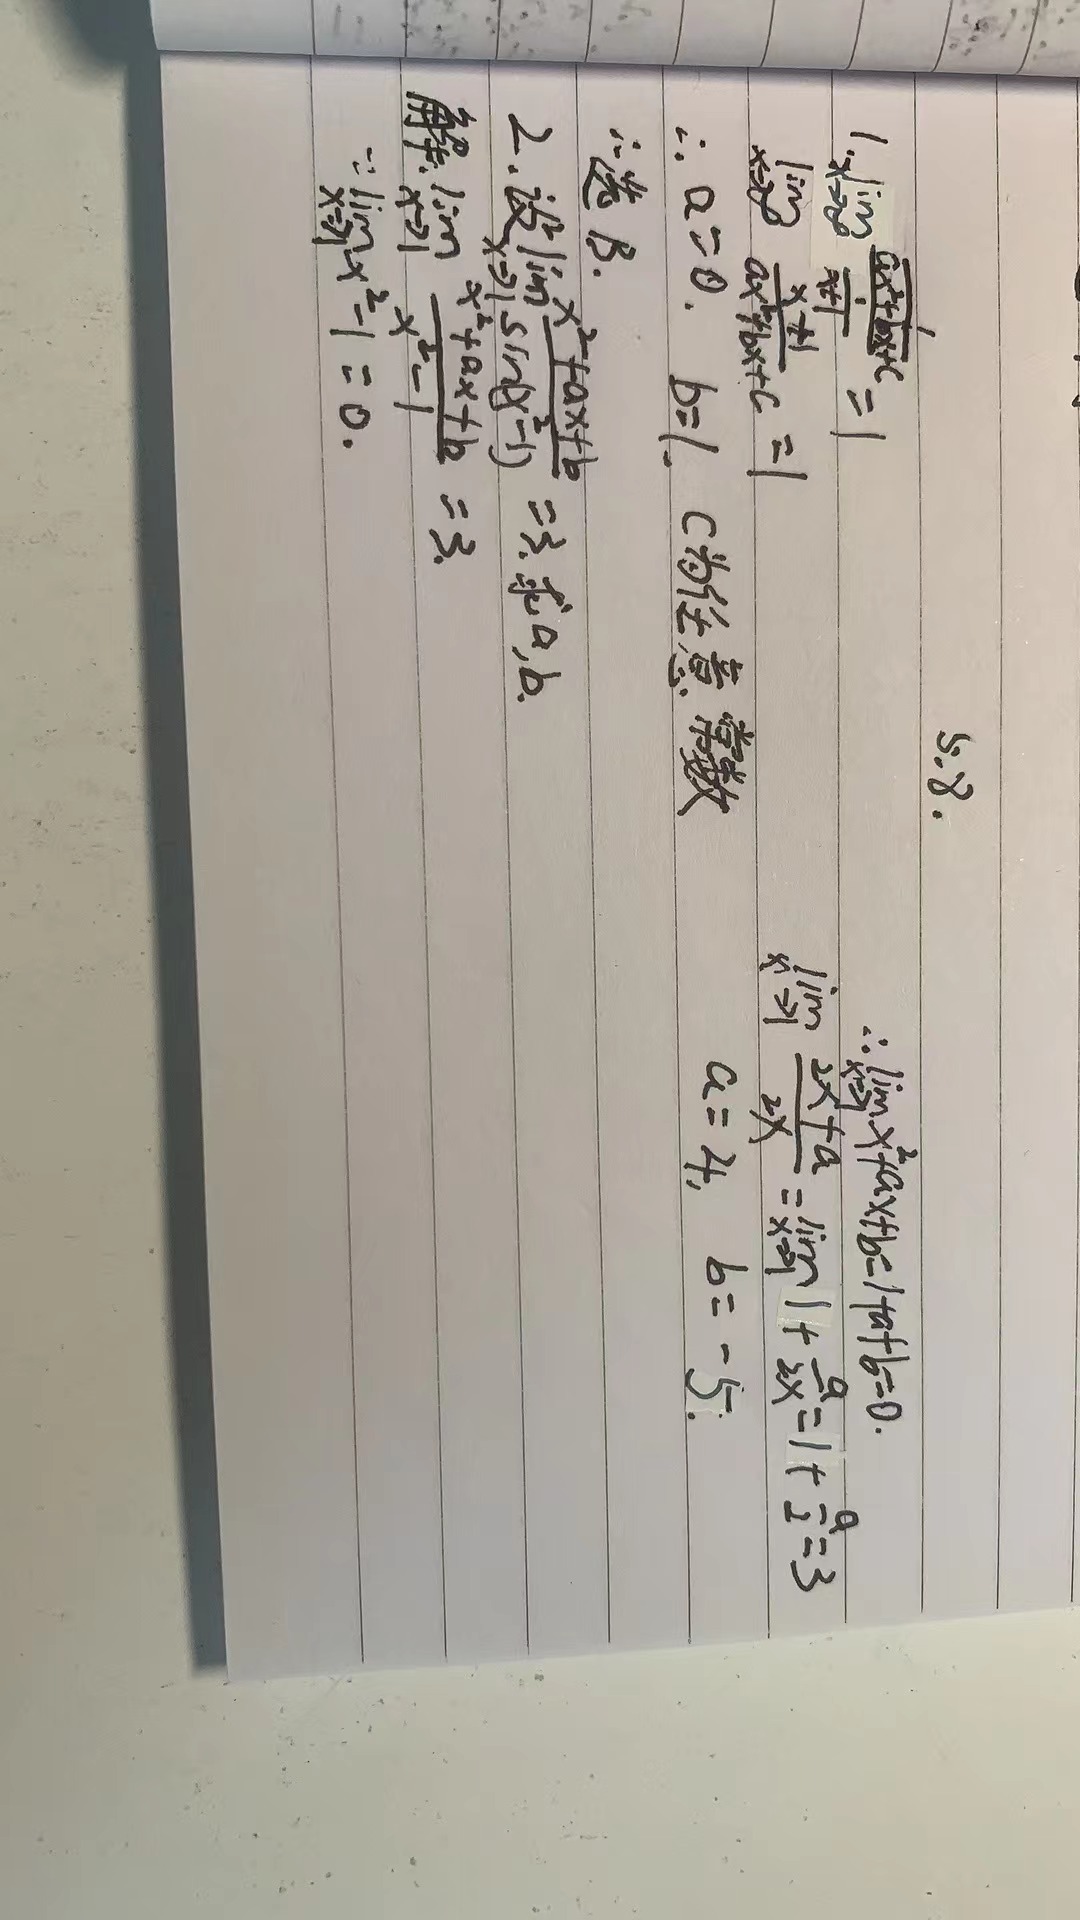 5.8.
1. ∵ lim x→∞ (1/(ax²+bx+c))/(1/(x+1)) = 1
lim x→∞ (x+1)/(ax²+bx+c) = 1
∴ a=0. b=1. C为任意常数
∴选 B.
2. 设 lim x→1 (x²+ax+b)/(sin(x²-1)) =3. 求a,b.
解: lim x→1 (x²+ax+b)/(x²-1) =3.
∵ lim x→1 x²-1=0.
∴ lim x→1 x²+ax+b=1+a+b=0.
lim x→1 (2x+a)/(2x) = lim x→1 1+a/(2x) = 1+a/2 = 3
a=4, b=-5.